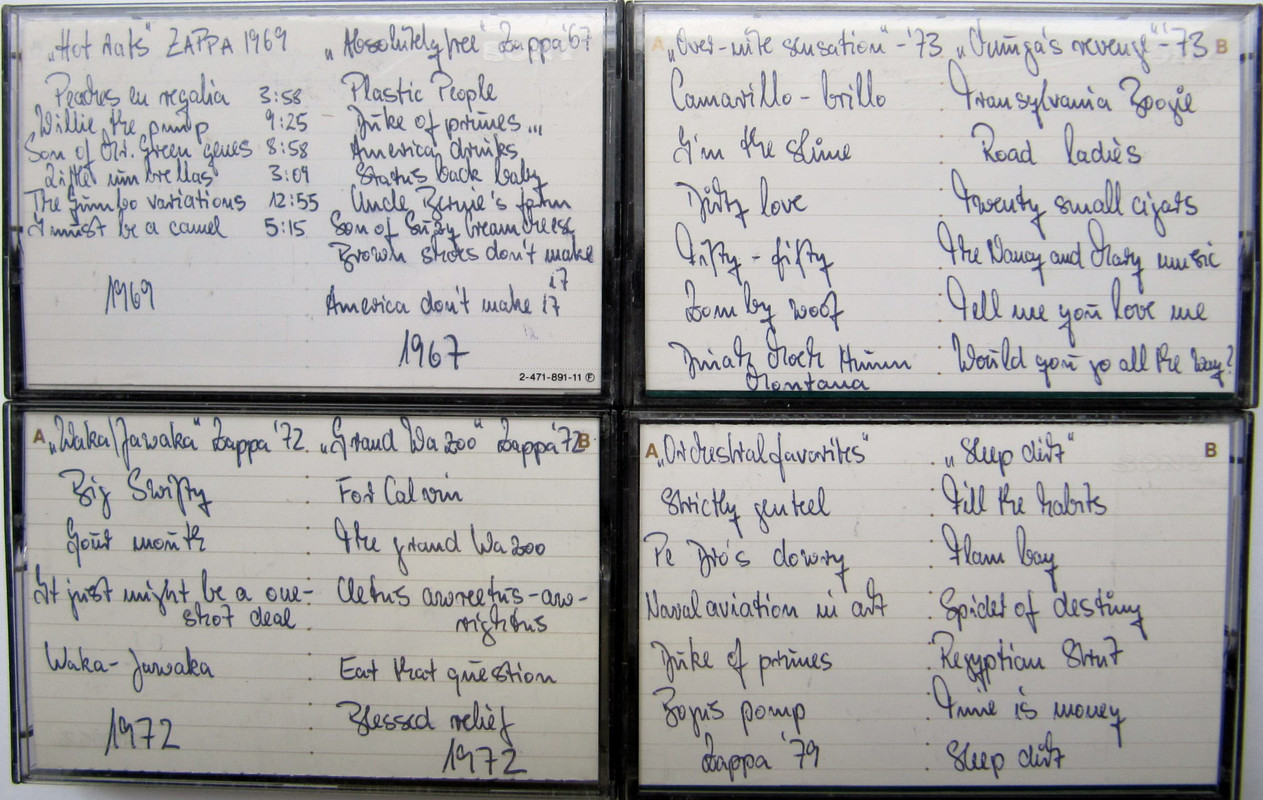 „Hot Rats" ZAPPA 1969
Peaches en regalia 3:58
Willie the pimp 9:25
Son of Mr. Green genes 8:58
Little umbrellas 3:09
The Gumbo variations 12:55
I must be a camel 5:15
1969
„Absolutely free" Zappa '67
Plastic People
Duke of prunes ...
America drinks
Status back baby
Uncle Bernie's farm
Son of Suzy creamcheese
Brown shoes don't make
it
America don't make it
1967
2-471-891-11 Ⓕ
A „Over-nite sensation" - '73 „Chunga's revenge" - '73 B
Camarillo - brillo
I'm the slime
Dirty love
Fifty - fifty
Zomby woof
Dinah Moe Humm
Montana
Transylvania Boogie
Road ladies
Twenty small cigars
The Nancy and Mary music
Tell me you love me
Would you go all the way?
A „Waka/Jawaka" Zappa '72 „Grand Wazoo" Zappa '72 B
Big Swifty
Your mouth
It just might be a one-
shot deal
Waka - Jawaka
1972
For Calvin
The grand Wazoo
Cletus awreetus-aw-
rightus
Eat that question
Blessed relief
1972
A „Orchestral favorites" „Sleep dirt" B
Strictly genteel
Pedro's dowry
Naval aviation in art
Duke of prunes
Bogus pomp
Zappa '79
Filt the habits
Flam bay
Spider of destiny
Regyptian Strut
Time is money
Sleep dirt